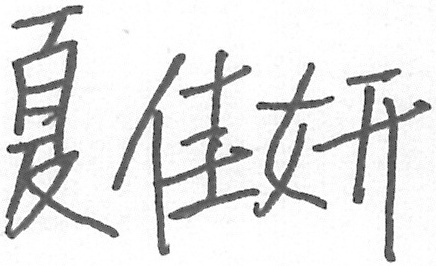 夏佳妍